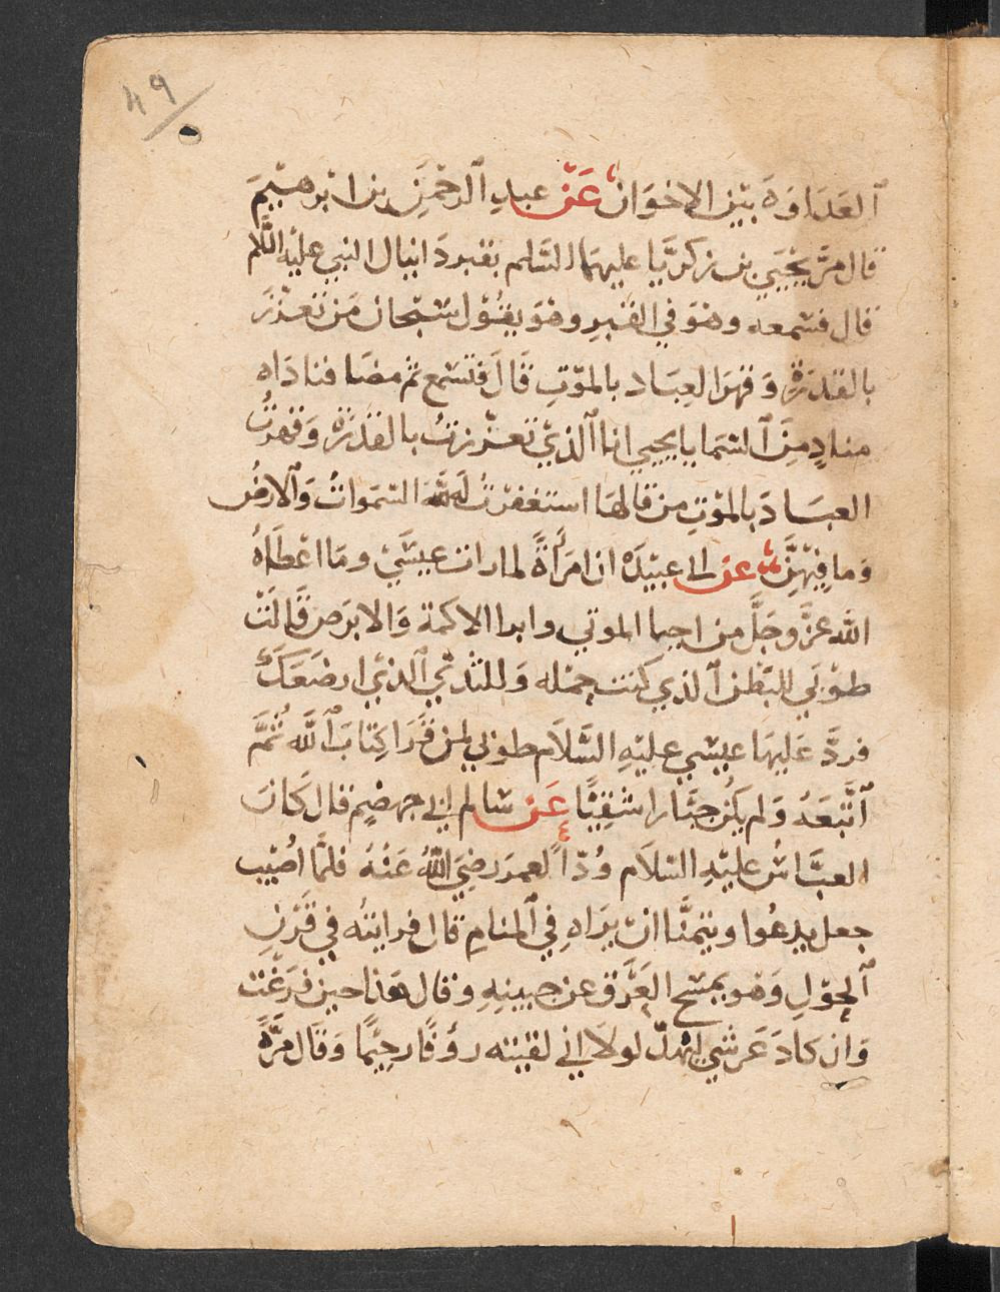 49
العَدَاوَةَ بَيْن الاخوَان عَنْ عبدِ الرحْمَنِ بن ابْرهيْمَ
قال مرّ يَحْيَي بن زكريَّا عليهمَا السَّلم بقبر دَانيال النبي عليْه السَّلام
قال فسَمعه وهوَ في القَبرِ وهوَ يقُوْل سُبْحان مَن تعزّزَ
بالقدْرَةِ وَقهرَ العِبَاد بالموْتِ قَالَ فتسَمع ثم مضَا فنادَاه
منادٍ مِنَ السَما يا يحيي انا الذيْ تعزّزتُ بالقدْرَة وَقهرتُ
العبَادَ بالموْتِ من قالهَا استغفرَتْ لَه السَموَاتُ وَالارْضُ
وَما فِيْهنَّ عن ابي عبيْدَة ان امرَأةً لما رات عيسَي ومَا اعْطاهُ
الله عزَّوجَلَّ من احيا الموتي وابرا الاكمة وَالابرَص قَالَتْ
طوْبَي للبَطْن الذي كنت حمْله وَللثدْيْ الذيْ ارضَعَكَ
فردَّ عَليهَا عيسي عليْهِ السَّلَام طوْبي لمن قَرَا كِتابَ اللَّه ثُمَّ
اتَّبَعَهُ وَلم يكُن جبَّارا شَقِيًّا عَن سَالم ابي جهضمٍ قال كَانَ
العبَّاسُ عليْهِ السّلاَم وُدّاً لعمرَ رضِيَ اللهُ عَنْهُ فلمَّا اُصيْب
جعل يدعُوا ويتمنَّا ان يرَاه فِي المنامِ قال فرايتُه في قَرْنِ
الحوْلِ وَهو يمسَح العَرَق عن جبينِهِ وقال هَذا حين فرَغْت
وَان كادَ عَرشي ليُهدّ لولاَ اني لقيته رؤفًا رحيْمًا وَقَال مَرَّةً